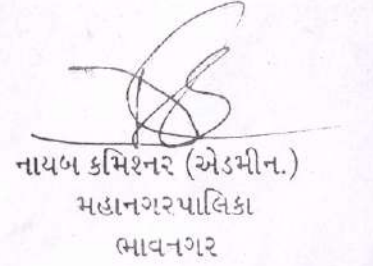 નાયબ કમિશ્નર (એડમીન.)
મહાનગરપાલિકા
ભાવનગર